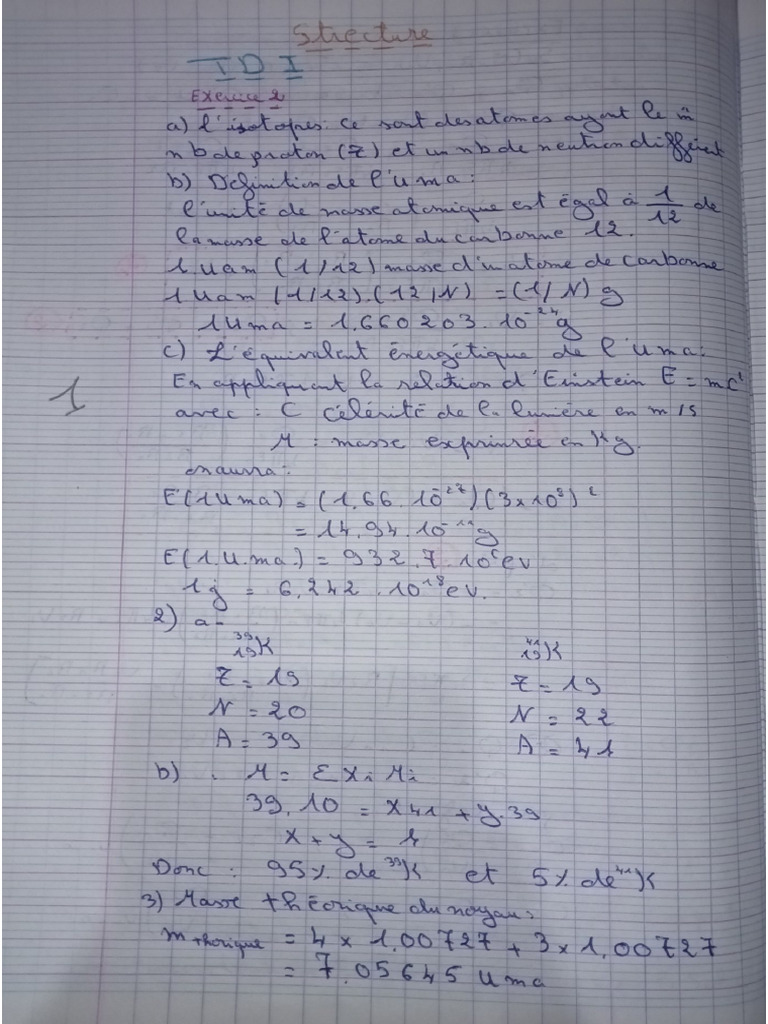 Structure
TD I
Exercice 2
a) l'isotopes: ce sont des atomes ayant le m̄
nb de proton (Z) et un nb de neutron différent
b) Définition de l'uma:
l'unité de masse atomique est égal à 1/12 de
la masse de l'atome du carbonne 12.
1 uam (1/12) masse d'un atome de carbonne
1 uam (1/12).(12/N) = (1/N) g
1 uma = 1.660203.10⁻²⁴ g
c) L'équivalent énergétique de l'uma:
En appliquant la relation d'Einstein E = mc²
avec: C célérité de la lumière en m/s
M : masse exprimée en Kg.
on aura:
1
E(1uma) = (1.66.10⁻²⁷)(3x10⁸)²
= 14.94.10⁻¹¹ j
E(1.u.ma.) = 932.7.10⁶ ev
1j = 6.242.10¹⁸ ev.
2) a-
³⁹₁₉K ⁴¹₁₉K
Z = 19 Z = 19
N = 20 N = 22
A = 39 A = 41
b) . M = Σ Xi Mi
39.10 = x 41 + y.39
x + y = 1
Donc : 95% de ³⁹K et 5% de ⁴¹K
3) Masse théorique du noyau:
m thorique = 4 x 1,00727 + 3 x 1,00727
= 7.05645 uma